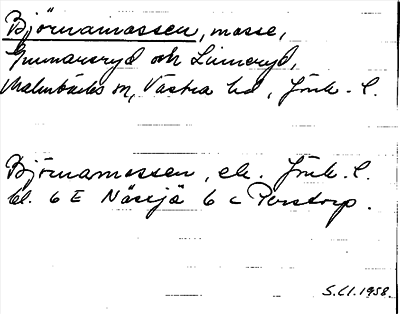 Björnamossen, mosse,
Gunnarsryd och Linneryd,
Malmbäcks sn, Västra hd, Jönk. l.
Björnamossen, ek. Jönk. l.
bl. 6 E Nässjö 6 c Perstorp.
S.Cl. 1958.